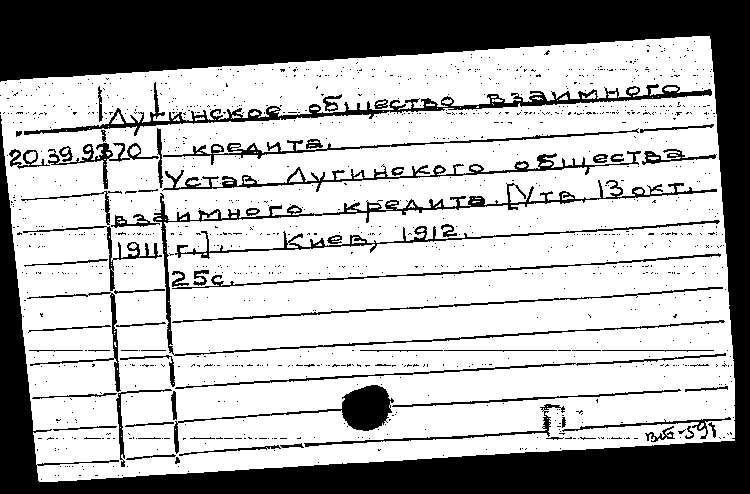 Лугинское общество взаимного
20.39.9370 кредита.
Устав Лугинского общества
взаимного кредита. [Утв. 13 окт.
1911 г.]. Киев, 1912.
25с.